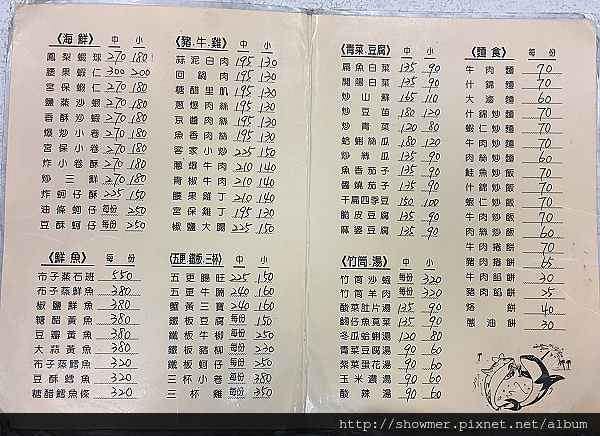 《海鮮》 中 小
鳳梨蝦球 270 180
腰果蝦仁 300 200
宮保蝦仁 270 180
鹽蒸沙蝦 270 180
香酥沙蝦 270 180
爆炒小卷 270 180
宮保小卷 270 180
炸小卷酥 270 180
炒三鮮 270 180
炸蚵仔酥 225 150
油條蚵仔 每份 250
豆酥蚵仔 每份 250
《鮮魚》 每份
布子蒸石班 550
布子蒸鮮魚 380
椒鹽鮮魚 380
糖醋黃魚 380
豆瓣黃魚 380
大蒜黃魚 380
布子蒸鱈魚 320
豆酥鱈魚 320
糖醋鱈魚條 320
《豬.牛.雞》 中 小
蒜泥白肉 195 130
回鍋肉 195 130
糖醋里肌 195 130
蔥爆肉絲 195 130
京醬肉絲 195 130
魚香肉絲 195 130
客家小炒 225 150
蔥爆牛肉 210 140
青椒牛肉 210 140
腰果雞丁 210 140
宮保雞丁 195 130
椒鹽大腸 225 150
《五更.鐵板.三杯》 中 小
五更腸旺 225 150
五更牛腩 240 160
蟹黃三寶 240 160
鐵板豆腐 每份 150
鐵板牛柳 每份 230
鐵板豬柳 每份 230
鐵板蚵仔 每份 250
三杯小卷 每份 380
三杯雞 每份 350
《青菜.豆腐》 中 小
扁魚白菜 135 90
開陽白菜 135 90
炒山蘇 165 110
炒豆苗 180 120
炒青菜 120 80
蛤蜊絲瓜 180 120
炒絲瓜 135 90
魚香茄子 135 90
醬燒茄子 135 90
干扁四季豆 150 100
脆皮豆腐 135 90
麻婆豆腐 135 90
《竹筒.湯》 中 小
竹筒沙蝦 每份 320
竹筒羊肉 每份 320
酸菜肚片湯 135 90
魩仔魚莧菜 135 90
冬瓜蛤蜊湯 135 90
青菜豆腐湯 90 60
紫菜蛋花湯 90 60
玉米濃湯 90 60
酸辣湯 90 60
《麵食》 每份
牛肉麵 70
什錦麵 70
大滷麵 60
什錦炒麵 70
蝦仁炒麵 70
牛肉炒麵 70
肉絲炒麵 60
鮭魚炒飯 70
什錦炒飯 70
蝦仁炒飯 70
牛肉炒飯 70
肉絲炒飯 60
牛肉捲餅 70
豬肉捲餅 65
牛肉餡餅 30
豬肉餡餅 25
烙餅 40
蔥油餅 30
http://showmer.pixnet.net/album